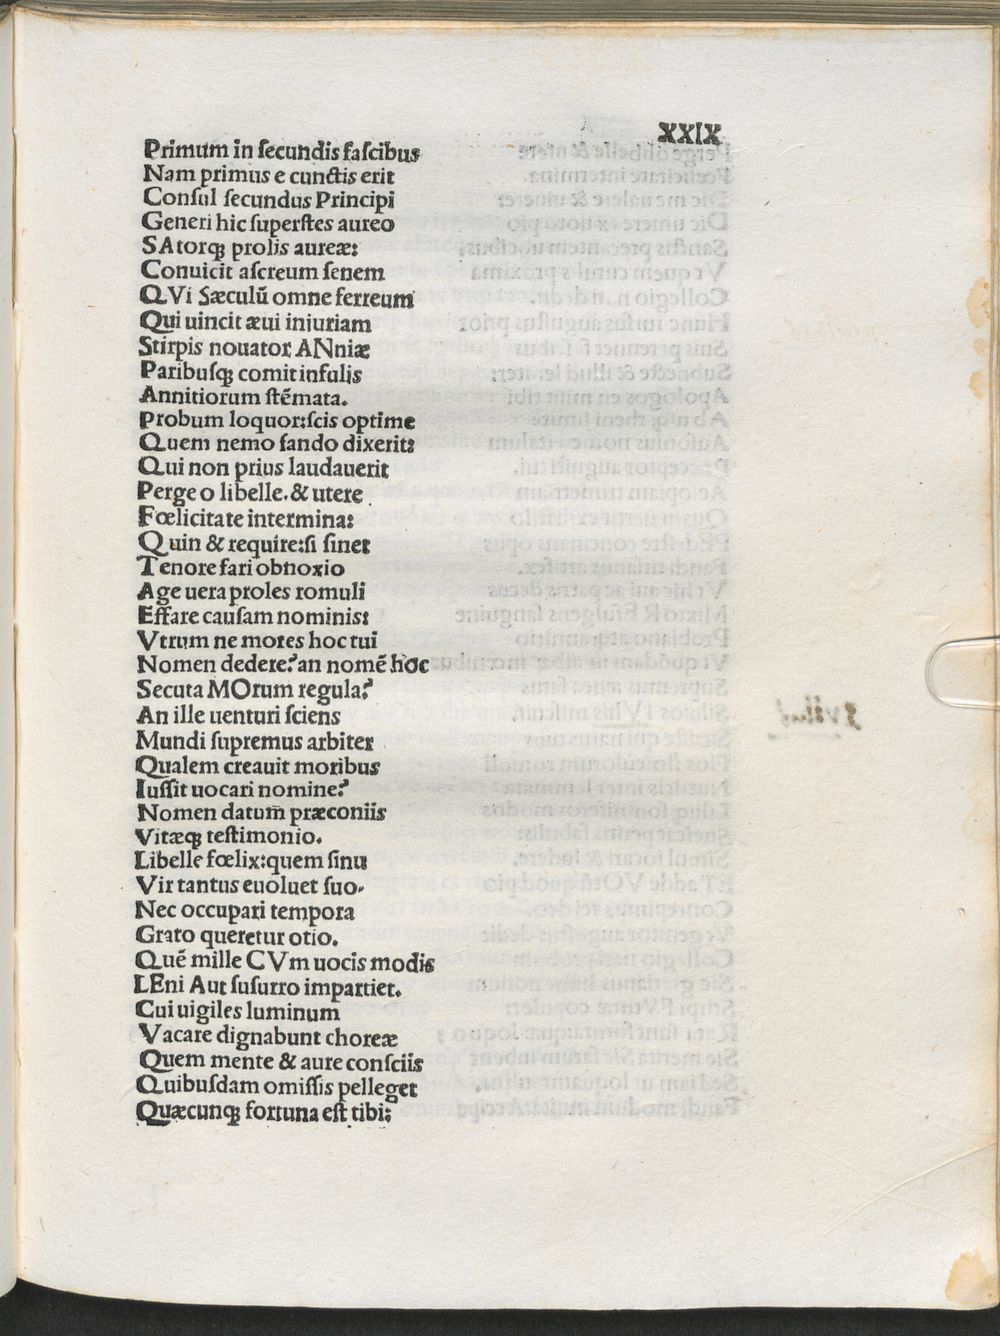 XXIX
Primum in ſecundis faſcibus
Nam primus e cunctis erit
Conſul ſecundus Principi
Generi hic ſuperſtes aureo
SAtorqꝫ prolis aureæ:
Conuicit aſcreum ſenem
QVi Sæculũ omne ferreum
Qui uincit æui iniuriam
Stirpis nouator ANniæ
Paribuſqꝫ comit infulis
Annitiorum ſtẽmata.
Probum loquor:ſcis optime
Quem nemo fando dixerit:
Qui non prius laudauerit
Perge o libelle.& utere
Fœlicitate intermina:
Quin & require:ſi ſinet
Tenore fari obnoxio
Age uera proles romuli
Effare cauſam nominis:
Vtrum ne mores hoc tui
Nomen dedere?an nomẽ hoc
Secuta MOrum regula?
An ille uenturi ſciens
Mundi ſupremus arbiter
Qualem creauit moribus
Iuſſit uocari nomine?
Nomen datum præconiis
Vitæqꝫ teſtimonio.
Libelle fœlix:quem ſinu
Vir tantus euoluet ſuo.
Nec occupari tempora
Grato queretur otio.
Quẽ mille CVm uocis modis
LEni Aut ſuſurro impartiet.
Cui uigiles luminum
Vacare dignabunt choreæ
Quem mente & aure conſciis
Quibuſdam omiſſis pelleget
Quæcunqꝫ fortuna eſt tibi: